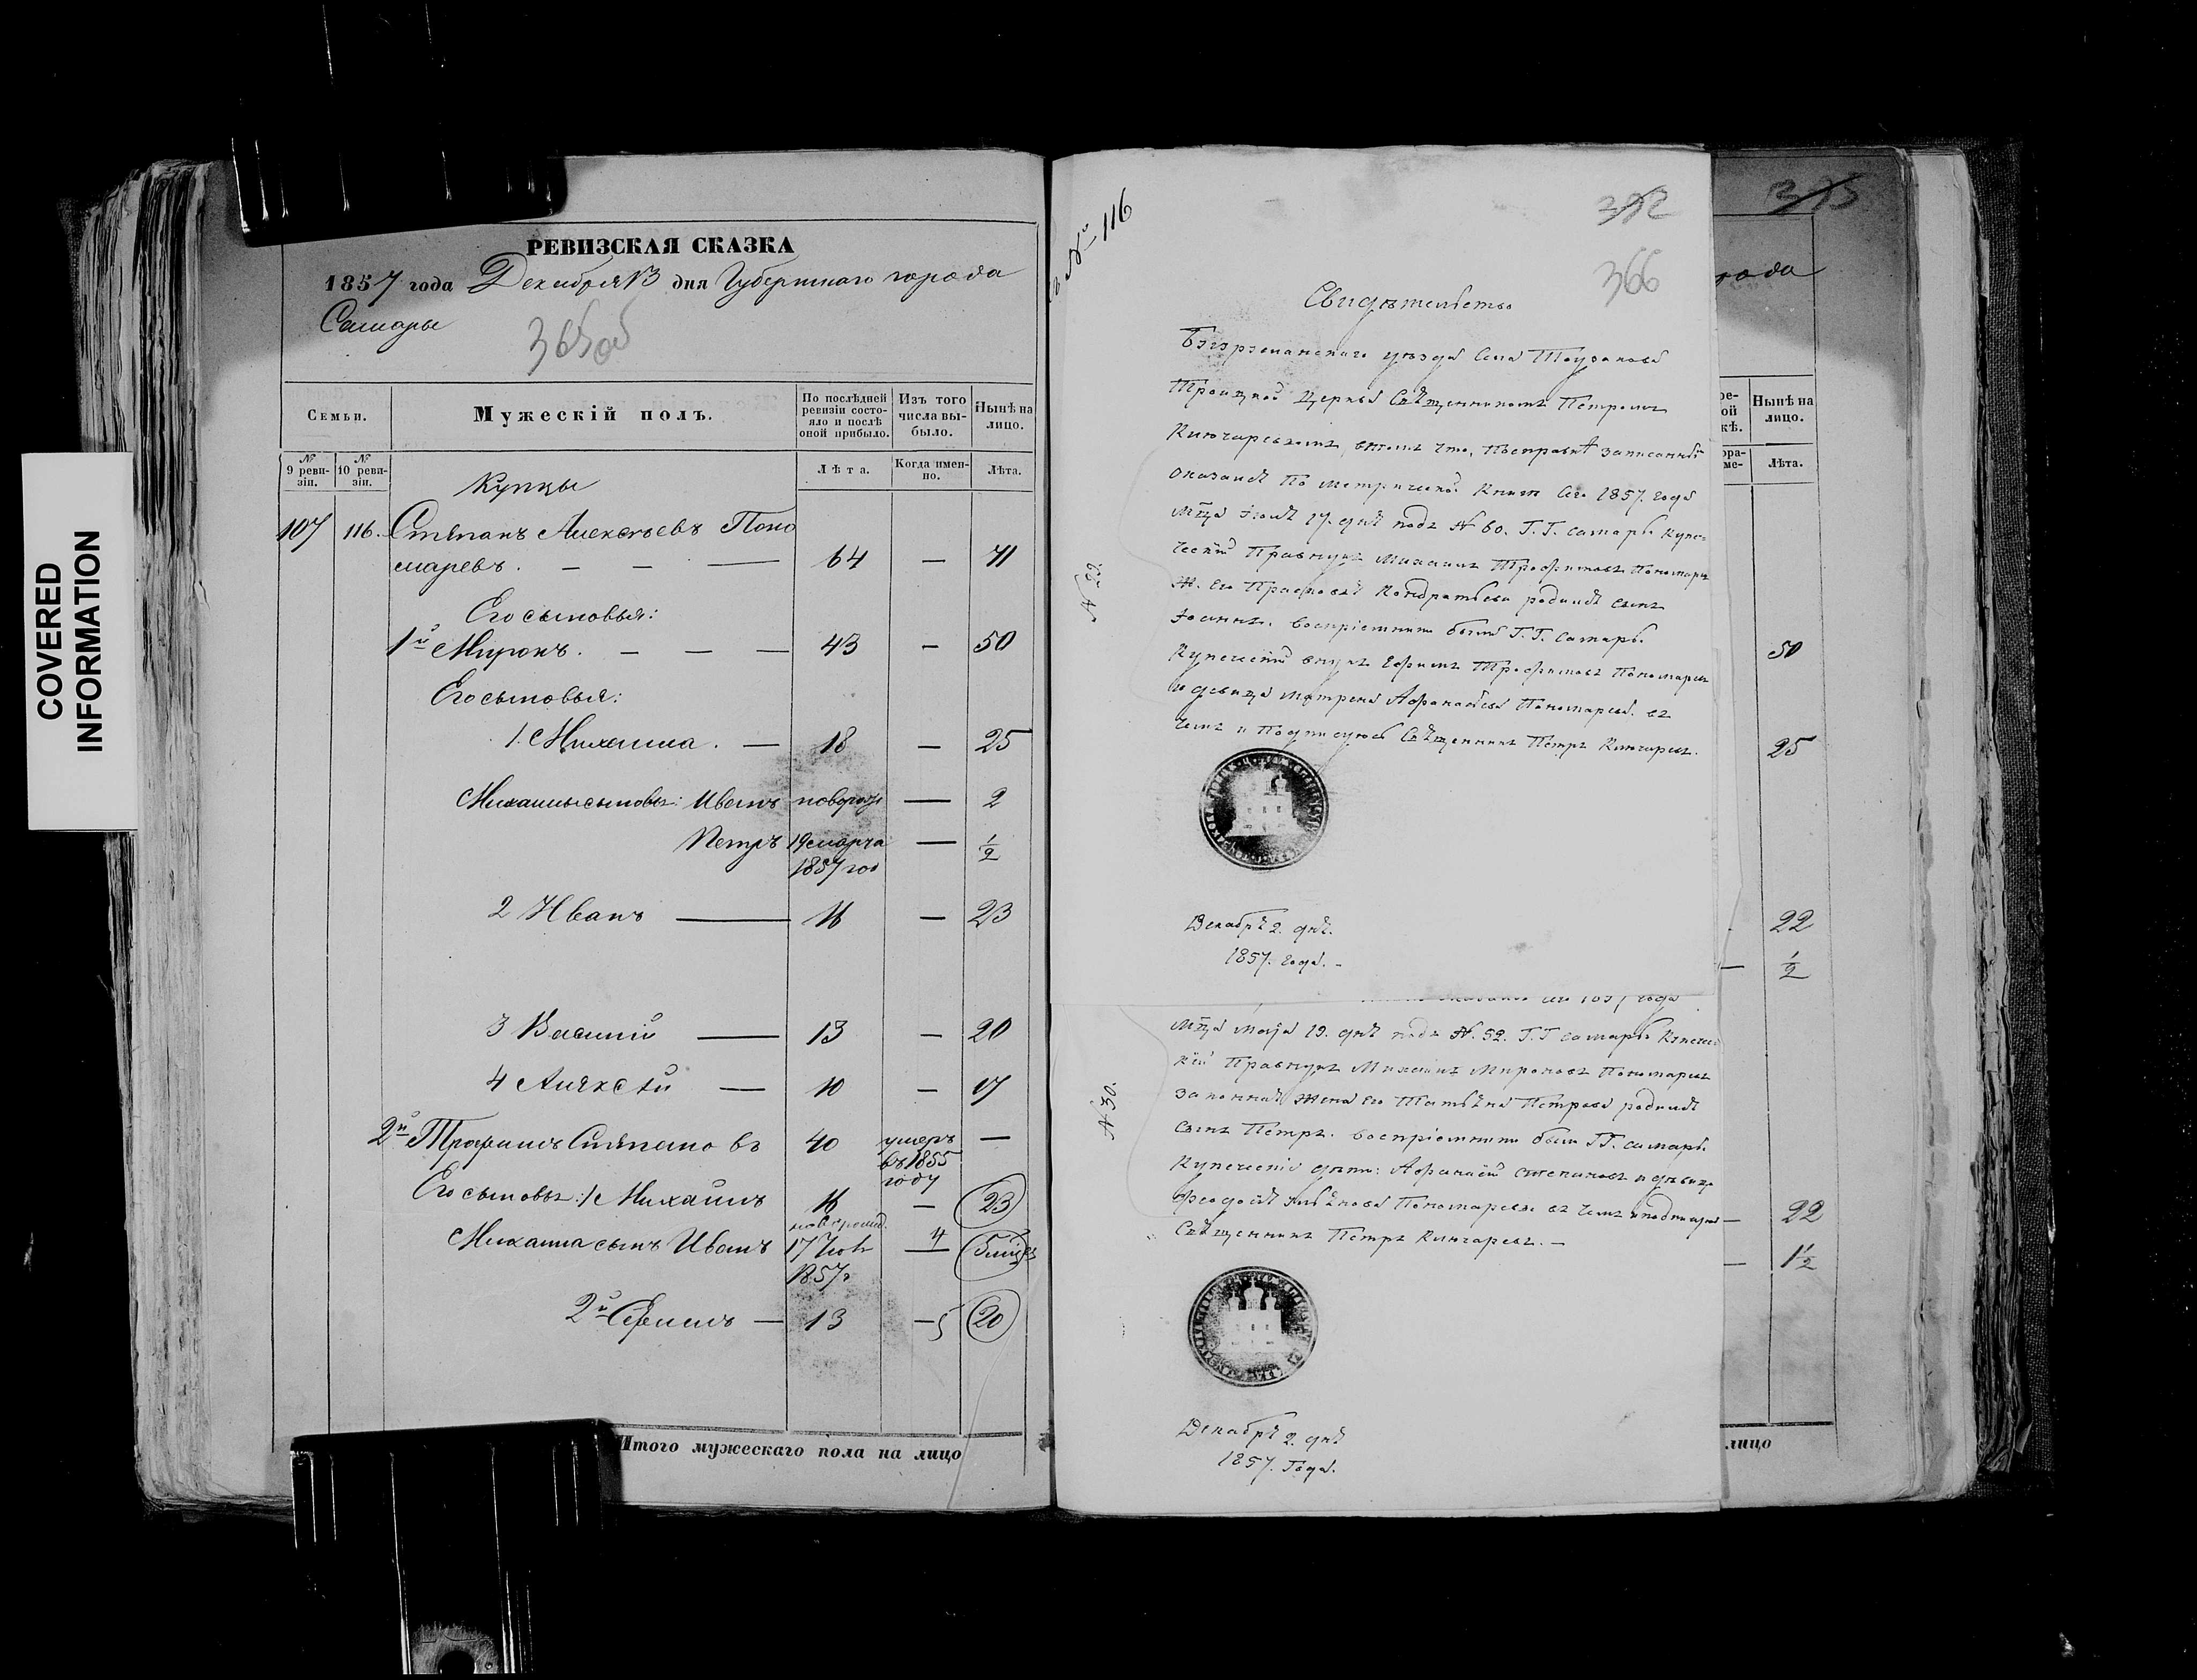 COVERED
INFORMATION
РЕВИЗСКАЯ СКАЗКА
1857 года Декабря 13 дня Губернскаго города
Самары
365об
Семьи.
Мужескій полъ.
По послѣдней ревизіи состояло и послѣ оной прибыло.
Изъ того числа выбыло.
Нынѣ на лицо.
№ 9 ревизіи.
№ 10 ревизіи.
Лѣта.
Когда именно.
Лѣта.
Купцы
107 116. Степанъ Алексѣевъ Поно
маревъ. — — — 64 — 71
Его сыновья:
1й Миронъ. — — — 43 — 50
Его сыновья:
1. Михаила. — 18 — 25
Михаилы сыновья: Иванъ новорож — 2
Петръ 19 марта — ½
1857 год
2 Иванъ — 16 — 23
3 Василій — 13 — 20
4 Алексѣй — 10 — 17
2й Трофимъ Степановъ 40 умеръ —
въ 1855
году
Его сыновья: 1 Михаилъ 16 — 23
новорожд.
Михаила сынъ Иванъ 17 Іюля 4 5 мцевъ
1857г
2й Ефимъ — 13 —5 20
Итого мужескаго пола на лицо
№ 116
372
366
Свидѣтельство
Бугурусланскаго уѣзда Села
Троицкой Церкви Священникомъ Петромъ
Ключаревымъ, втомъ что,
оказалось По метрической Книги Сего 1857. года
Мца Іюля 17. дня подъ № 60. Г.Г. Самары Купе-
ческій Правнукъ Михаилъ Трофимовъ Пономарев
Ж. Его Прасковья Кондратьева родился сынъ
Іоаннъ. Воспріемники были Г.Г. Самары
Купеческій внукъ Ефимъ Трофимовъ Пономарев
и девица Матрена Афанасьева Пономарева. въ
чемъ и Подписуюсь Священникъ Петръ Ключарев.
№ 29.
Декабря 2. дня.
1857. года. -
Мца Мая 19. дня подъ № 52. Г.Г. Самары Купечес
кій Правнукъ Михаилъ Мироновъ Пономарев
законная Жена его Татьяна Петрова родился
сынъ Петръ. Воспріемники были Г.Г. Самары
Купеческіе дети: Афанасій Степановъ и девица
Пономарева въ чемъ и подписуюсь
Священникъ Петръ Ключаревъ. —
№ 30.
Декабря 2. дня
1857. Года.
375
рода
Нынѣ на лицо.
Лѣта.
50
25
22
— ½
— 22
— 1½
лицо